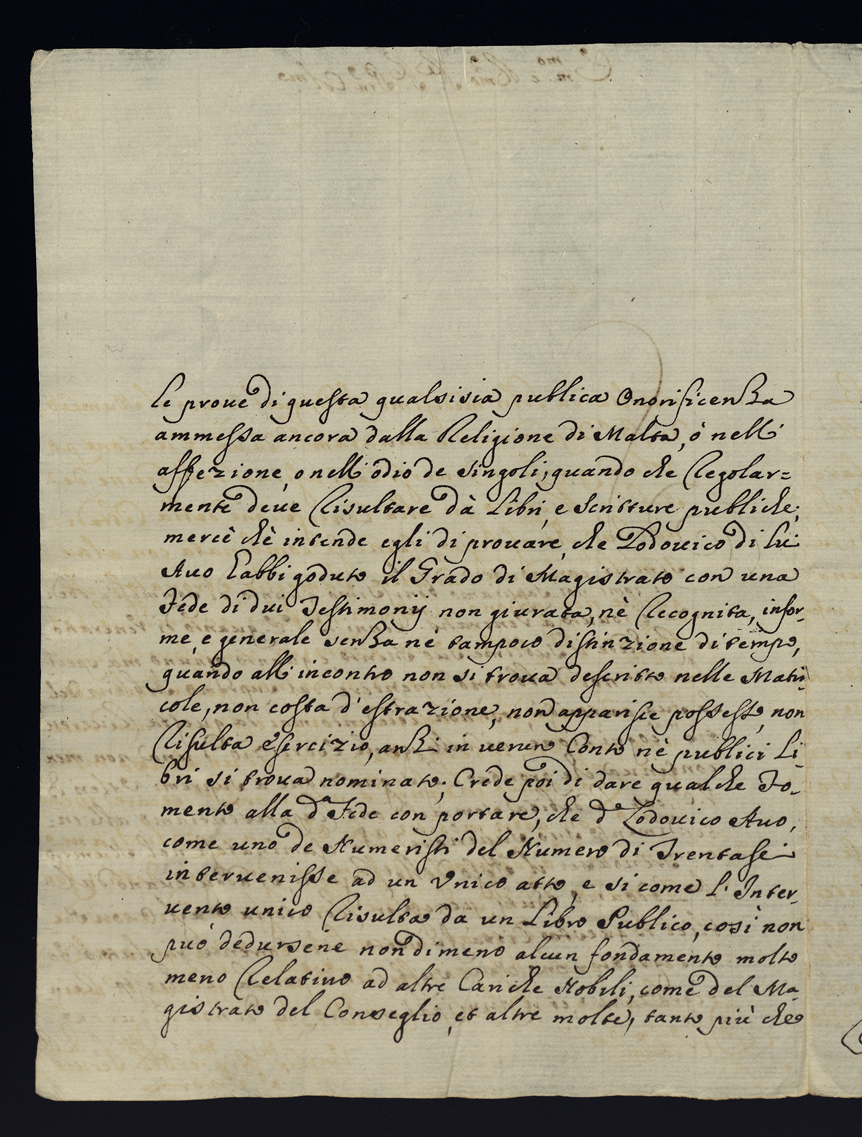 le proue di questa qualsisia publica Onorificenza
ammessa ancora dalla Religione di Malta, ò nell'
affezione, o nell'odio de singoli, quando che Regolar=
mente deue Risultare dà Libri, e Scritture publiche;
mercè chè intende egli di prouare, che Lodouico di lui
Auo habbi goduto il Grado di Magistrato con una
Fede di dui Testimonij non giurata, nè Recognita, infor-
me, e generale senza nè tampoco distinzione di tempo,
quando all'incontro non si troua descritto nelle Matri-
cole, non costa d'estrazione, non apparisce possesso, non
Risulta esercizio, anzi in uerun Conto nè publici Li-
bri si troua nominato; Crede poi di dare qualche Fo-
mento alla d.ª Fede con portare, che d.º Lodouico Auo,
come uno de Numeristi del Numero di Trentasei
interuenisse ad un Vnico atto, e si come l'Inter-
uento unico Risulta da un Libro Publico, così non
può dedursene nondimeno alcun fondamento molto
meno Relatiuo ad altre Cariche Nobili, come del Ma-
gistrato del Conseglio, et altre molte, tanto più che